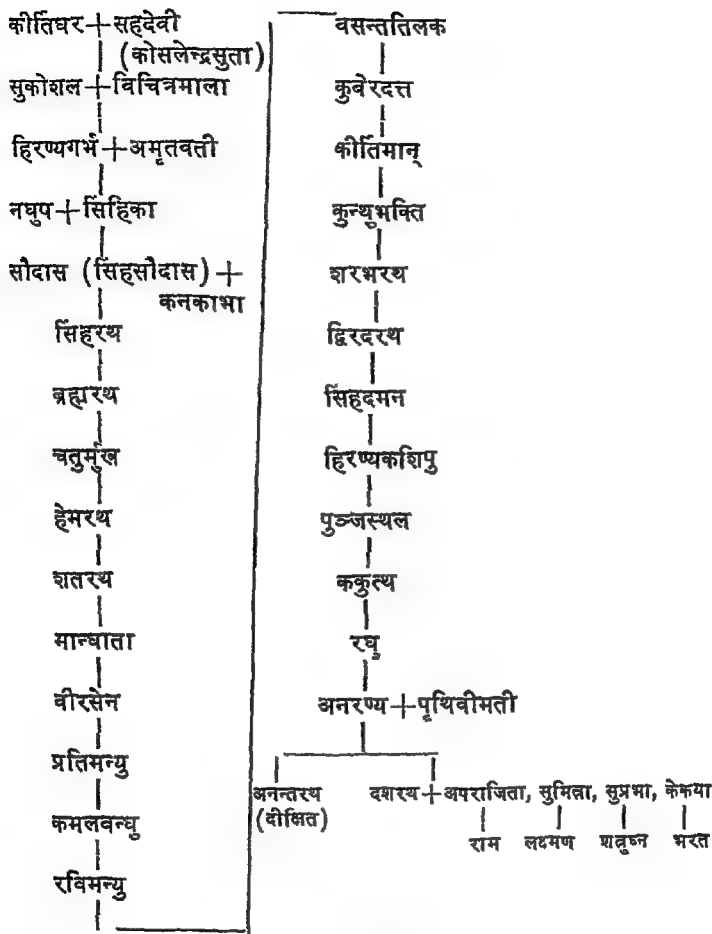 कीर्तिधर + सहदेवी
(कोसलेन्द्रसुता)
सुकोशल + विचित्रमाला
हिरण्यगर्भ + अमृतवती
नघुष + सिंहिका
सौदास (सिंहसौदास) +
कनकाभा
सिंहरथ
ब्रह्मरथ
चतुर्मुख
हेमरथ
शतरथ
मान्धाता
वीरसेन
प्रतिमन्यु
कमलवन्धु
रविमन्यु
वसन्ततिलक
कुवेरदत्त
कीर्तिमान्
कुन्थुभक्ति
शरभरथ
द्विरदरथ
सिंहदमन
हिरण्यकशिपु
पुञ्जस्थल
ककुत्थ
रघु
अनरण्य + पृथिवीमती
अनन्तरथ दशरथ + अपराजिता, सुमित्रा, सुप्रभा, केकया
(दीक्षित) राम लक्ष्मण शत्रुघ्न भरत